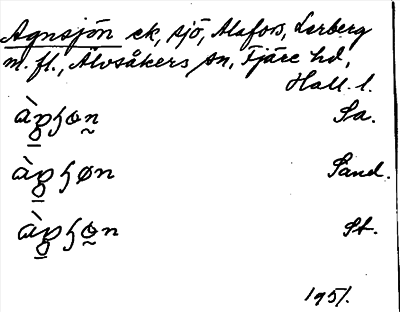 Agnsjön ek, sjö, Alafors, Lerberg
m.fl., Älvsåkers sn, Fjäre hd,
Hall. l.
Sa.
Sand.
St.
1951.